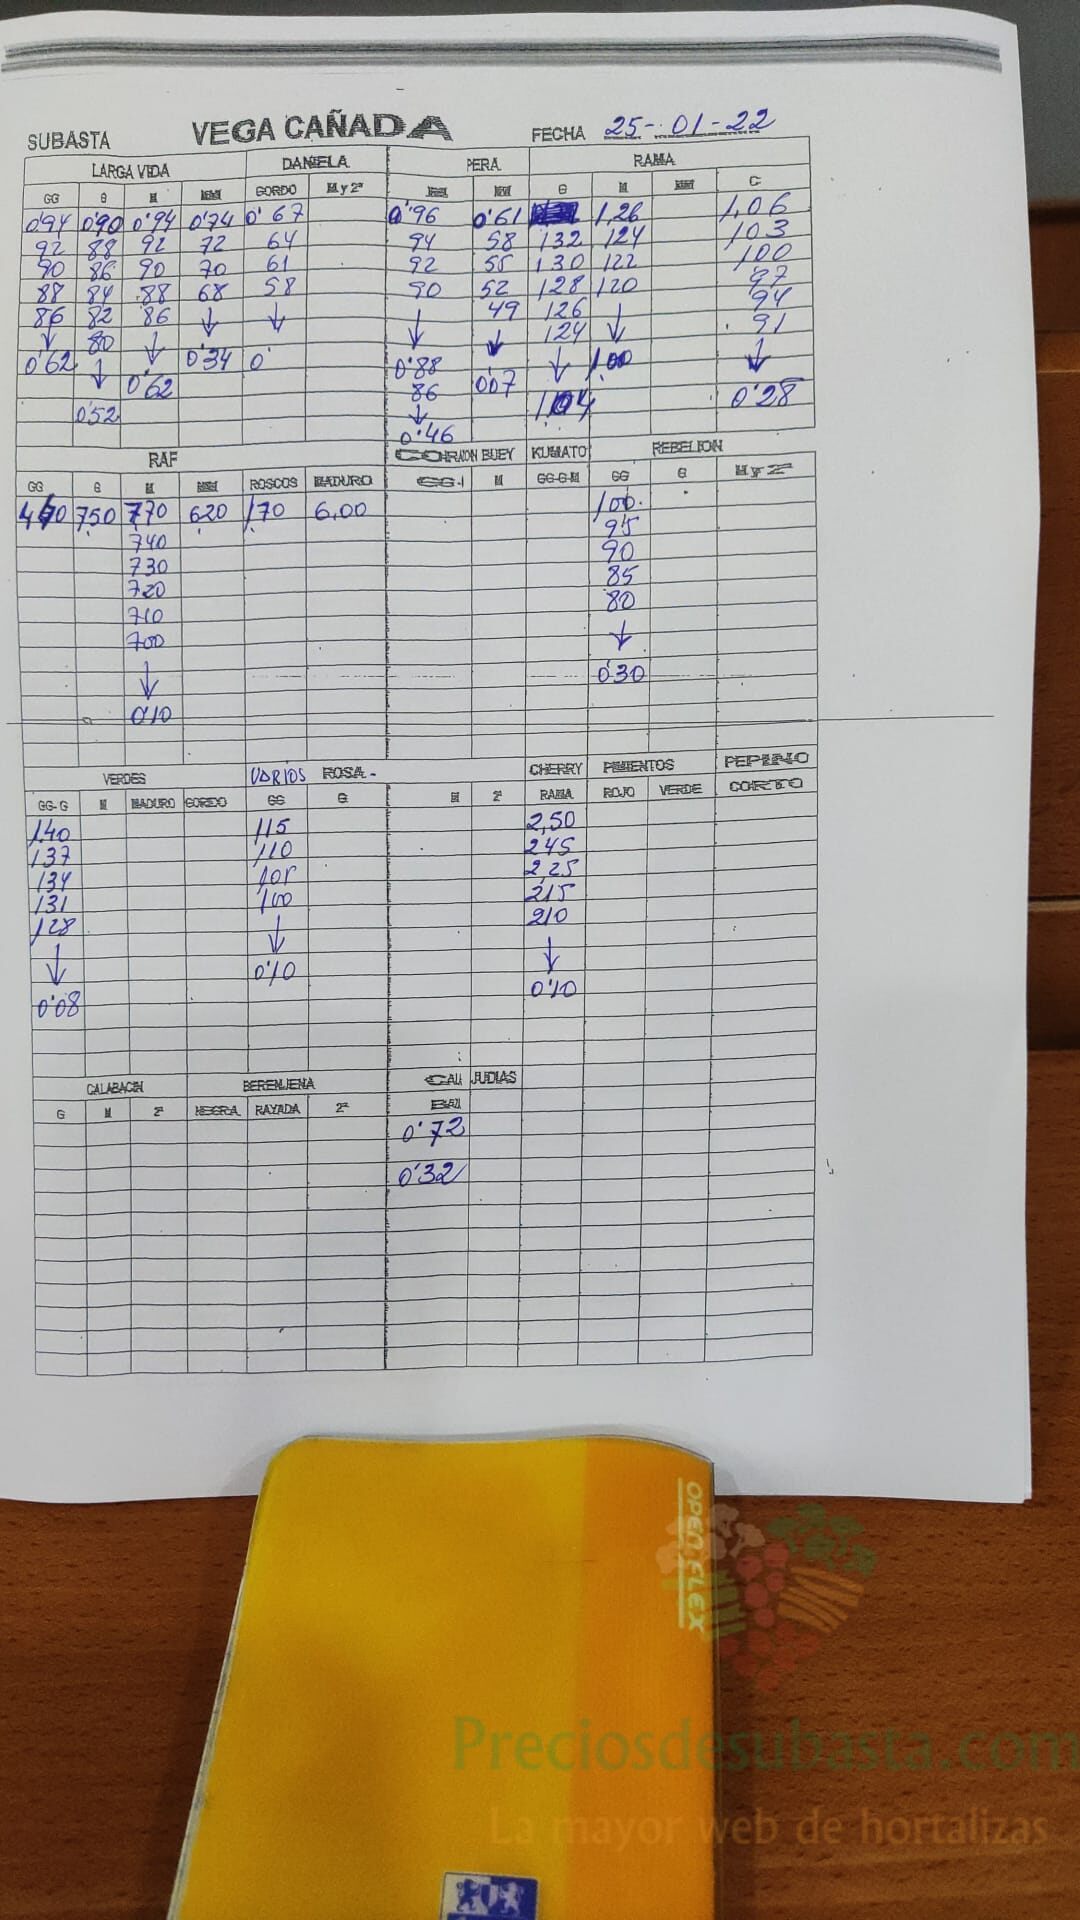 SUBASTA VEGA CAÑADA FECHA 25-01-22
LARGA VIDA DANIELA PERA RAMA
GG G M MM GORDO M y 2ª M MM G M MM C
0'94 0'90 0'94 0'74 0'67 0'96 0'61 1,26 1,06
92 88 92 72 64 94 58 132 124 103
90 86 90 70 61 92 55 130 122 100
88 84 88 68 58 90 52 128 120 97
86 82 86 ↓ ↓ ↓ 49 126 ↓ 94
↓ 80 ↓ ↓ 124 91
0'62 ↓ 0'34 0' 0'88 ↓ 1.00 ↓
0'62 86 007 0'28
0'52 ↓ 1,04
0'46
RAF CORAZON BUEY KUMATO REBELION
GG G M MM ROSCOS MADURO GG-G M GG-G-M GG G M y 2ª
750 770 620 170 6,00 100.
740 95
730 90
720 85
710 80
700 ↓
↓ 0'30
0'10
VERDES VARIOS ROSA - CHERRY PIMIENTOS PEPINO
GG-G M MADURO GORDO GG G M 2ª RAMA ROJO VERDE CORTO
1,40 115 2,50
137 110 245
134 105 2,25
131 100 215
128 ↓ 210
↓ 0'10 ↓
0'08 0'10
CALABACIN BERENJENA CAL JUDIAS
G M 2ª NEGRA RAYADA 2ª
0'72
0'32
OPEN FLEX
Preciosdesubasta.com
La mayor web de hortalizas